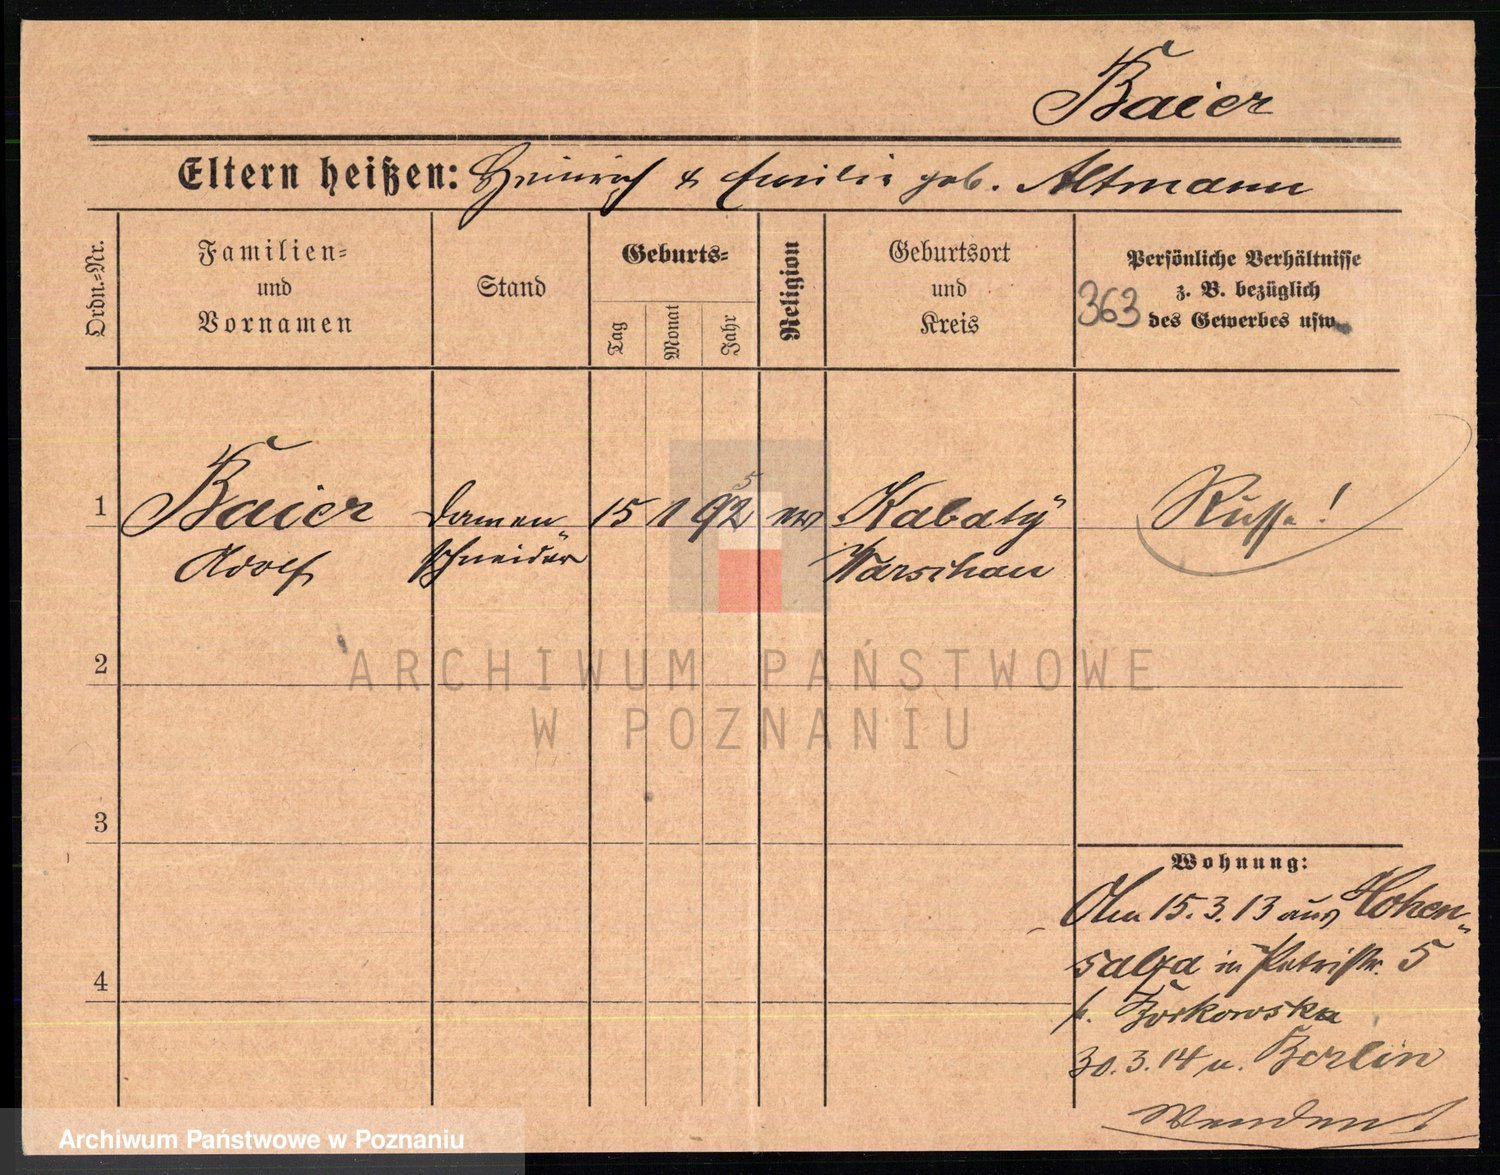 Baier
Eltern heißen: Heinrich & Emilie geb. Altmann
Ordn.-Nr.
Familien-
und
Vornamen
Stand
Geburts-
Tag
Monat
Jahr
Religion
Geburtsort
und
Kreis
Persönliche Verhältnisse
z. B. bezüglich
des Gewerbes usw.
363
1
Baier
Adolf
Damen
schneider
15
1
92
5
ev
Kabaty
Warschau
Russe!
2
3
4
Wohnung:
15.3.13 aus Hohen-
salza in Petristr. 5
b. Borkowska
30.3.14 n. Berlin
Wenden!
ARCHIWUM PAŃSTWOWE
W POZNANIU
Archiwum Państwowe w Poznaniu